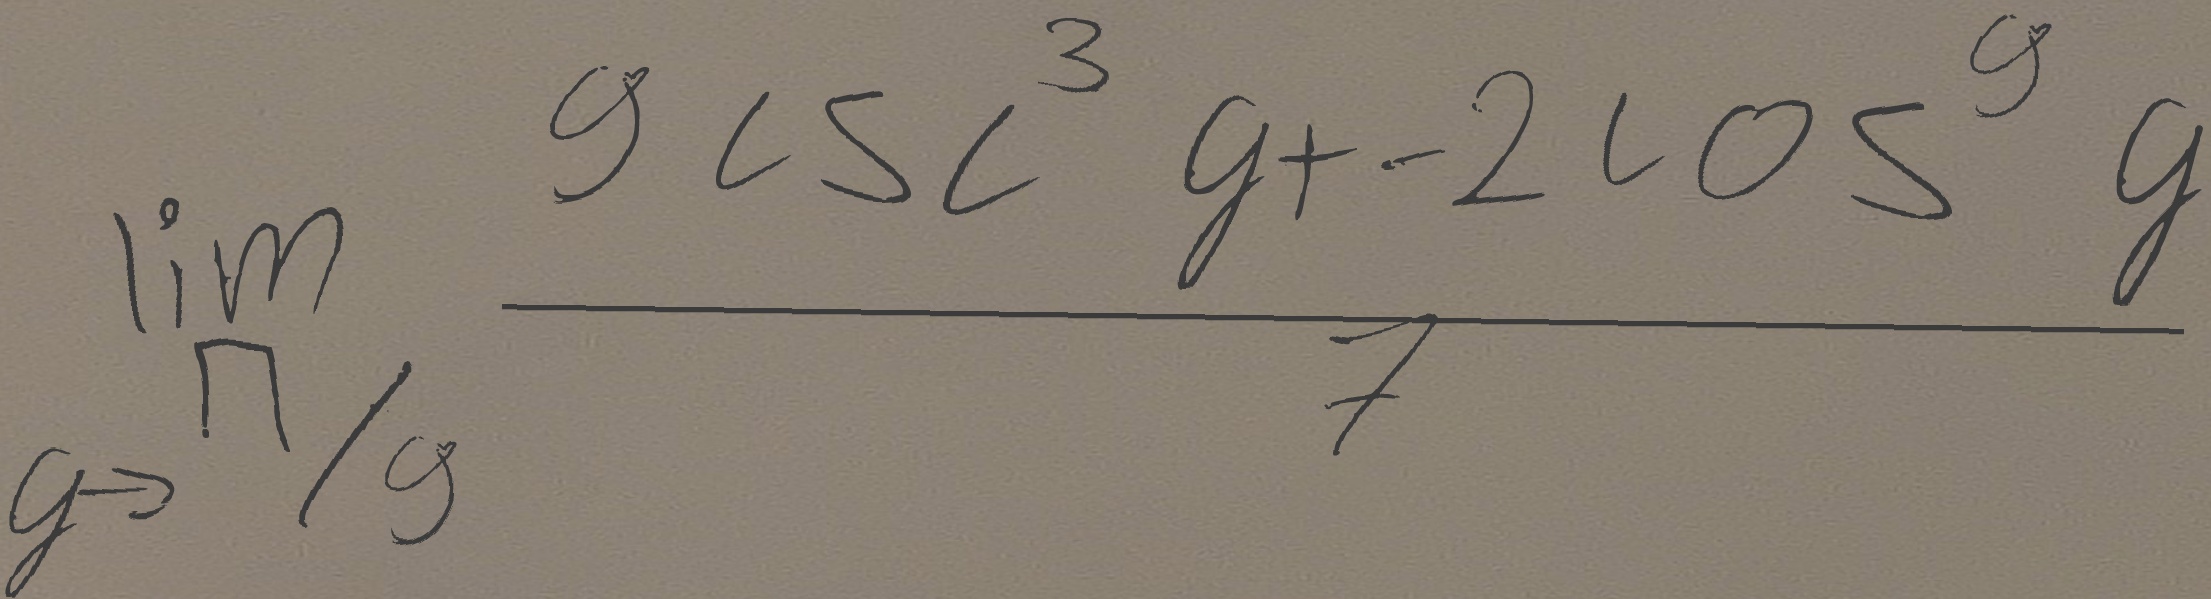 \lim_{g \to \pi/9} \frac{9 \csc^3 g + -2 \cos^9 g}{7}